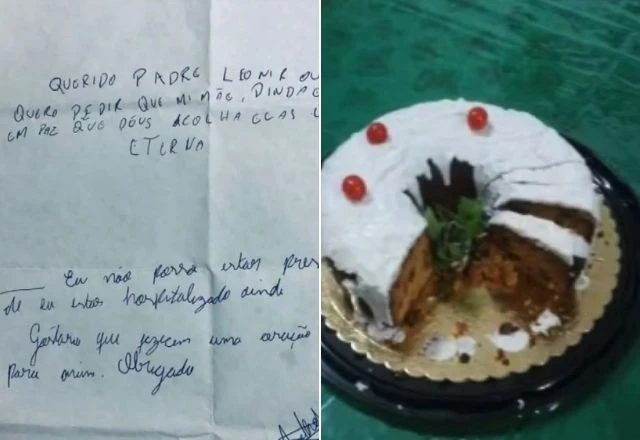 QUERIDO PADRE LEONIR OU
QUERO PEDIR QUE MI MÃE, DINDA E
EM PAZ QUE DEUS ACOLHA ELAS
ETERNA
Eu não posso estar pres
de eu estar hospitalizado ainda
Gostaria que fizecem uma oração
para mim. Obrigado